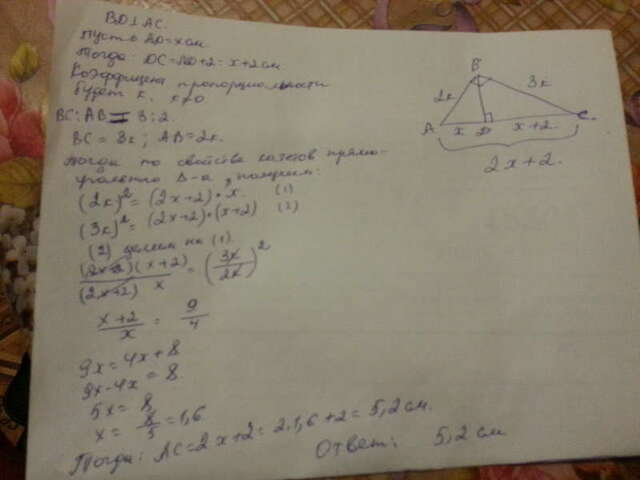 BD⊥AC.
Пусть AD = x см.
Тогда: DC = AD+2 = x+2 см
Коэффициент пропорциональности
будет k, k≠0
BC:AB = 3:2.
BC = 3k; AB = 2k.
Тогда по свойства катетов прямо-
угольного Δ-а, получим:
(2k)² = (2x+2)·x. (1)
(3k)² = (2x+2)·(x+2) (2)
(2) делим на (1)
(2x+2)(x+2) / (2x+2) x = (3k/2k)²
x+2 / x = 9/4
9x = 4x+8
9x-4x = 8
5x = 8
x = 8/5 = 1,6
Тогда: AC = 2x+2 = 2·1,6+2 = 5,2 см.
Ответ: 5,2 см
B
2k
3k
A
x
D
x+2
C
2x+2.